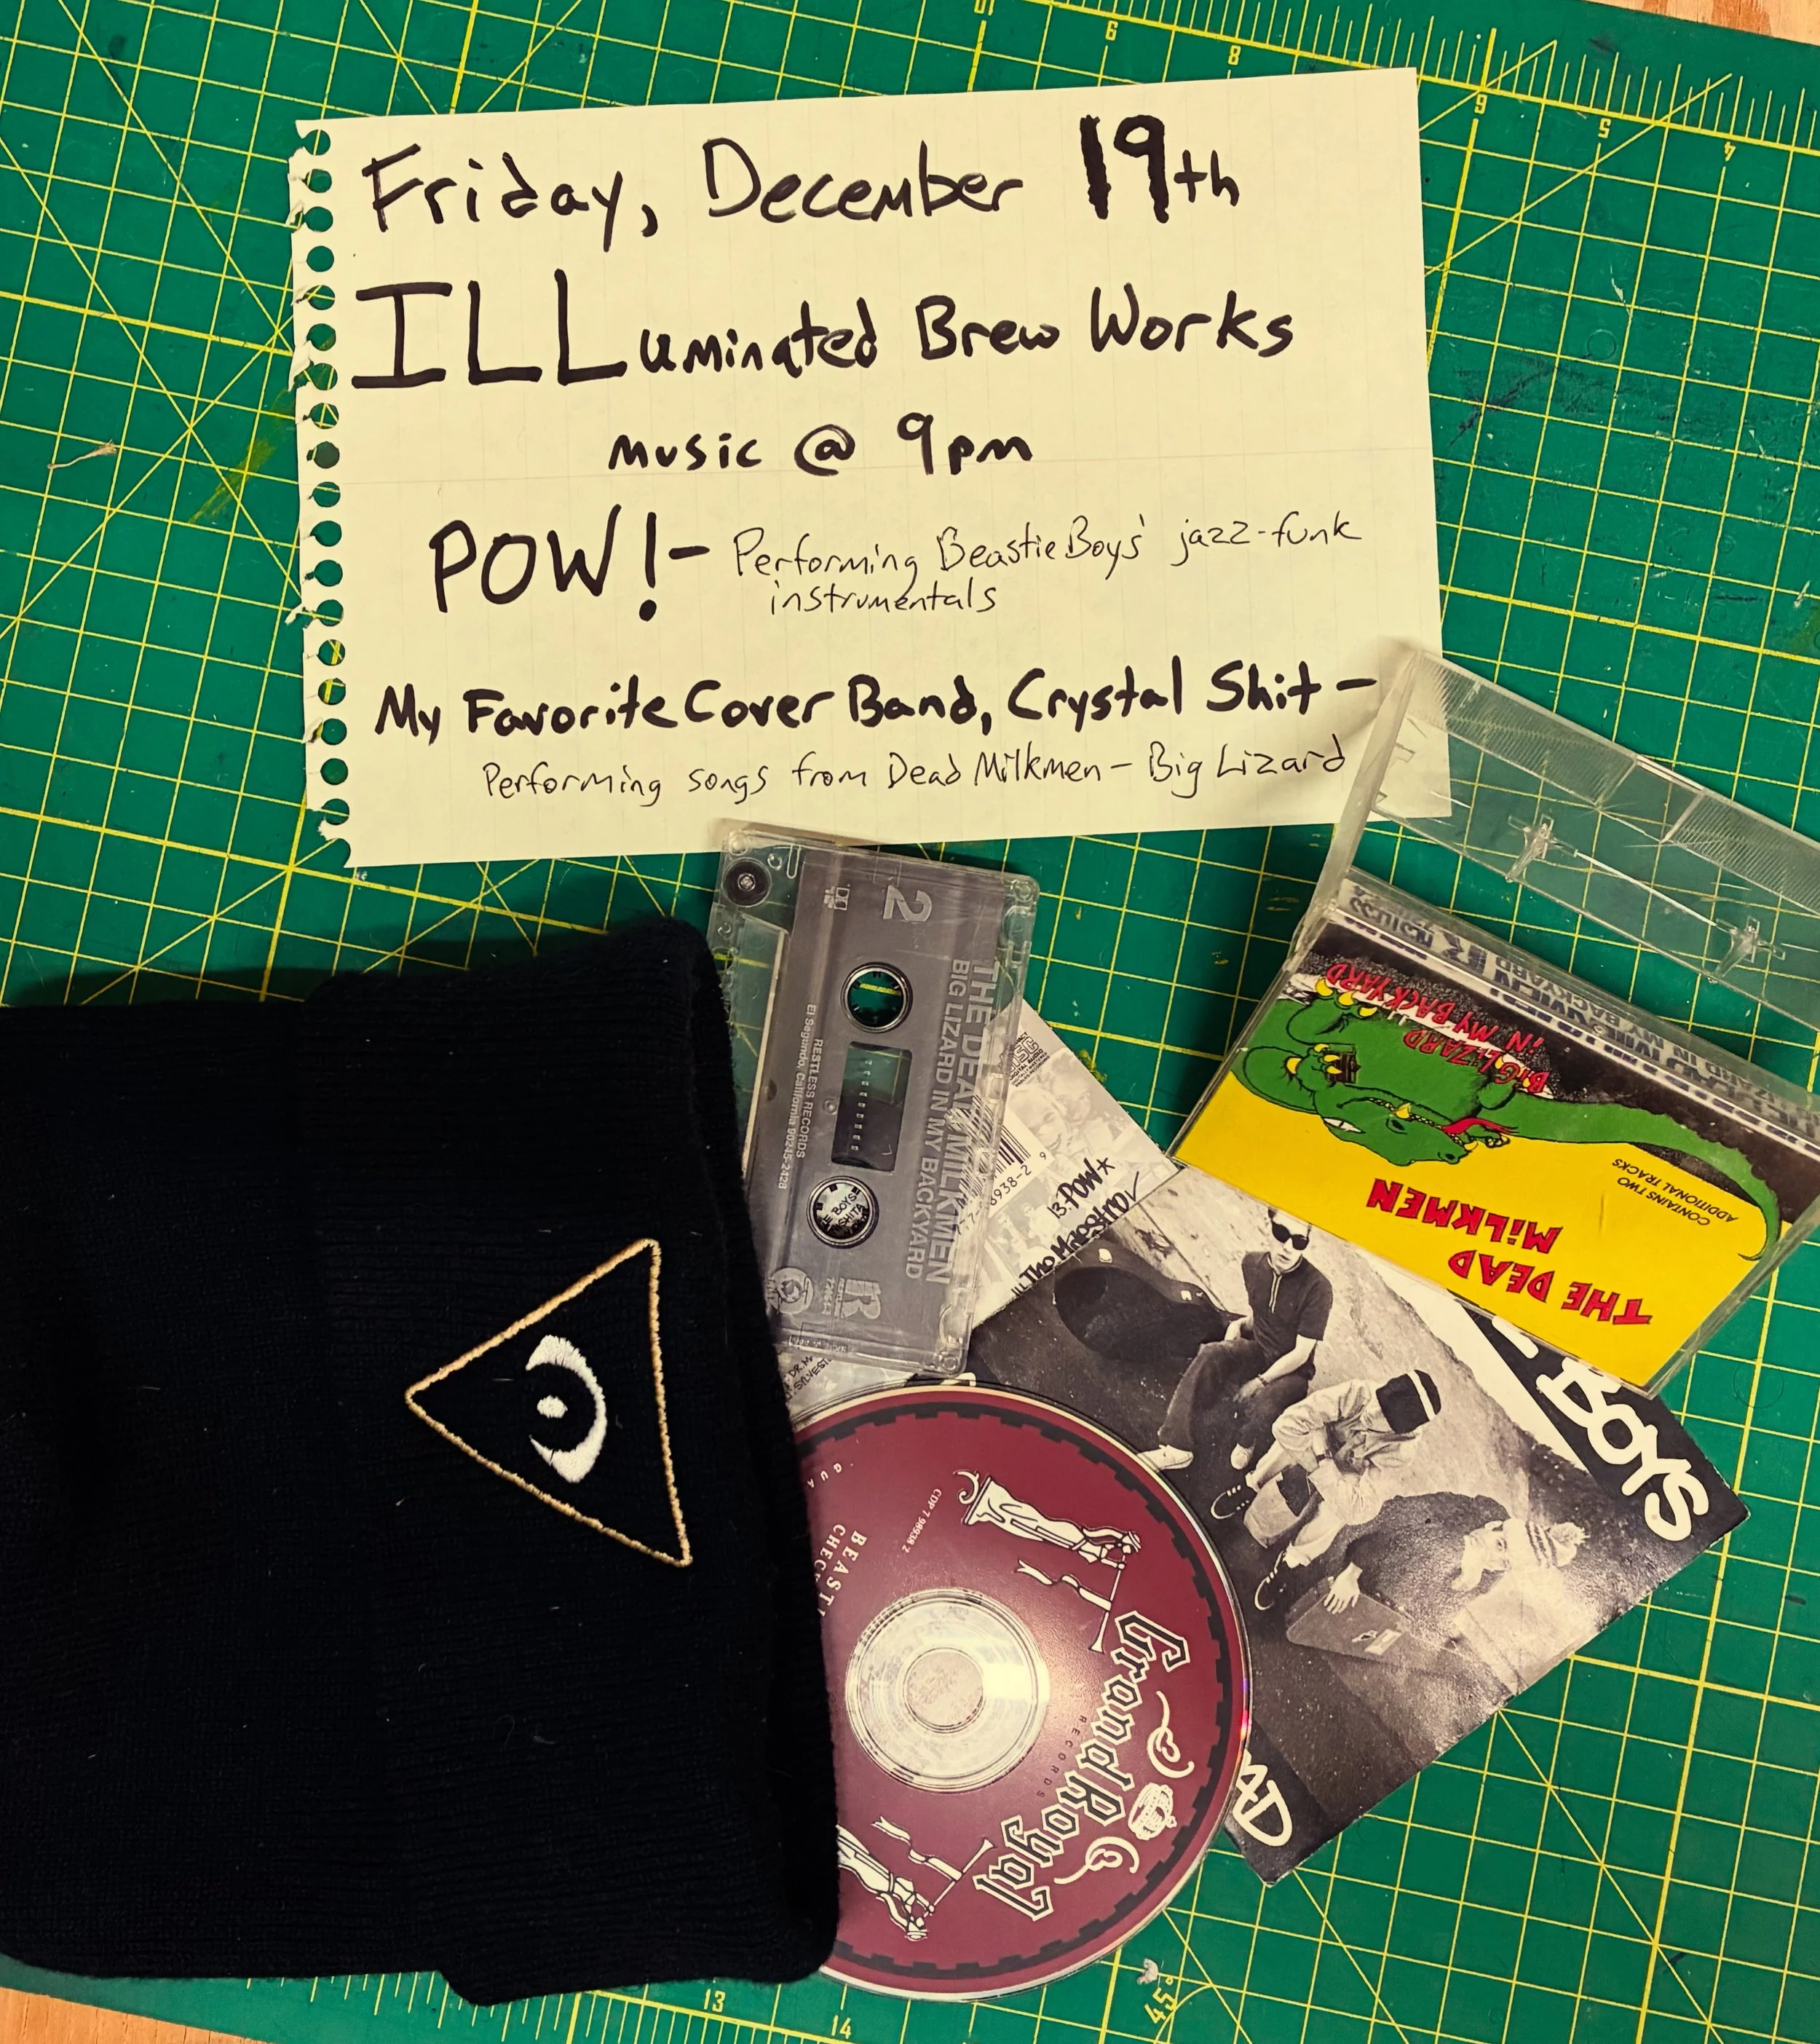 Friday, December 19th
ILLuminated Brew Works
music @ 9pm
POW!- Performing Beastie Boys' jazz-funk
instrumentals
My Favorite Cover Band, Crystal Shit -
Performing songs from Dead Milkmen - Big Lizard
2
THE DEAD MILKMEN
BIG LIZARD IN MY BACKYARD
RESTLESS RECORDS
El Segundo, California 90245-2428
BIG LIZARD
IN MY BACKYARD
CONTAINS TWO
ADDITIONAL TRACKS
THE DEAD
MILKMEN
13. POW*
BOYS
CDP 7 98938 2
BEASTI
CHEC
Grand Royal
RECORDS
10
9
8
6
5
4
13
14
45°